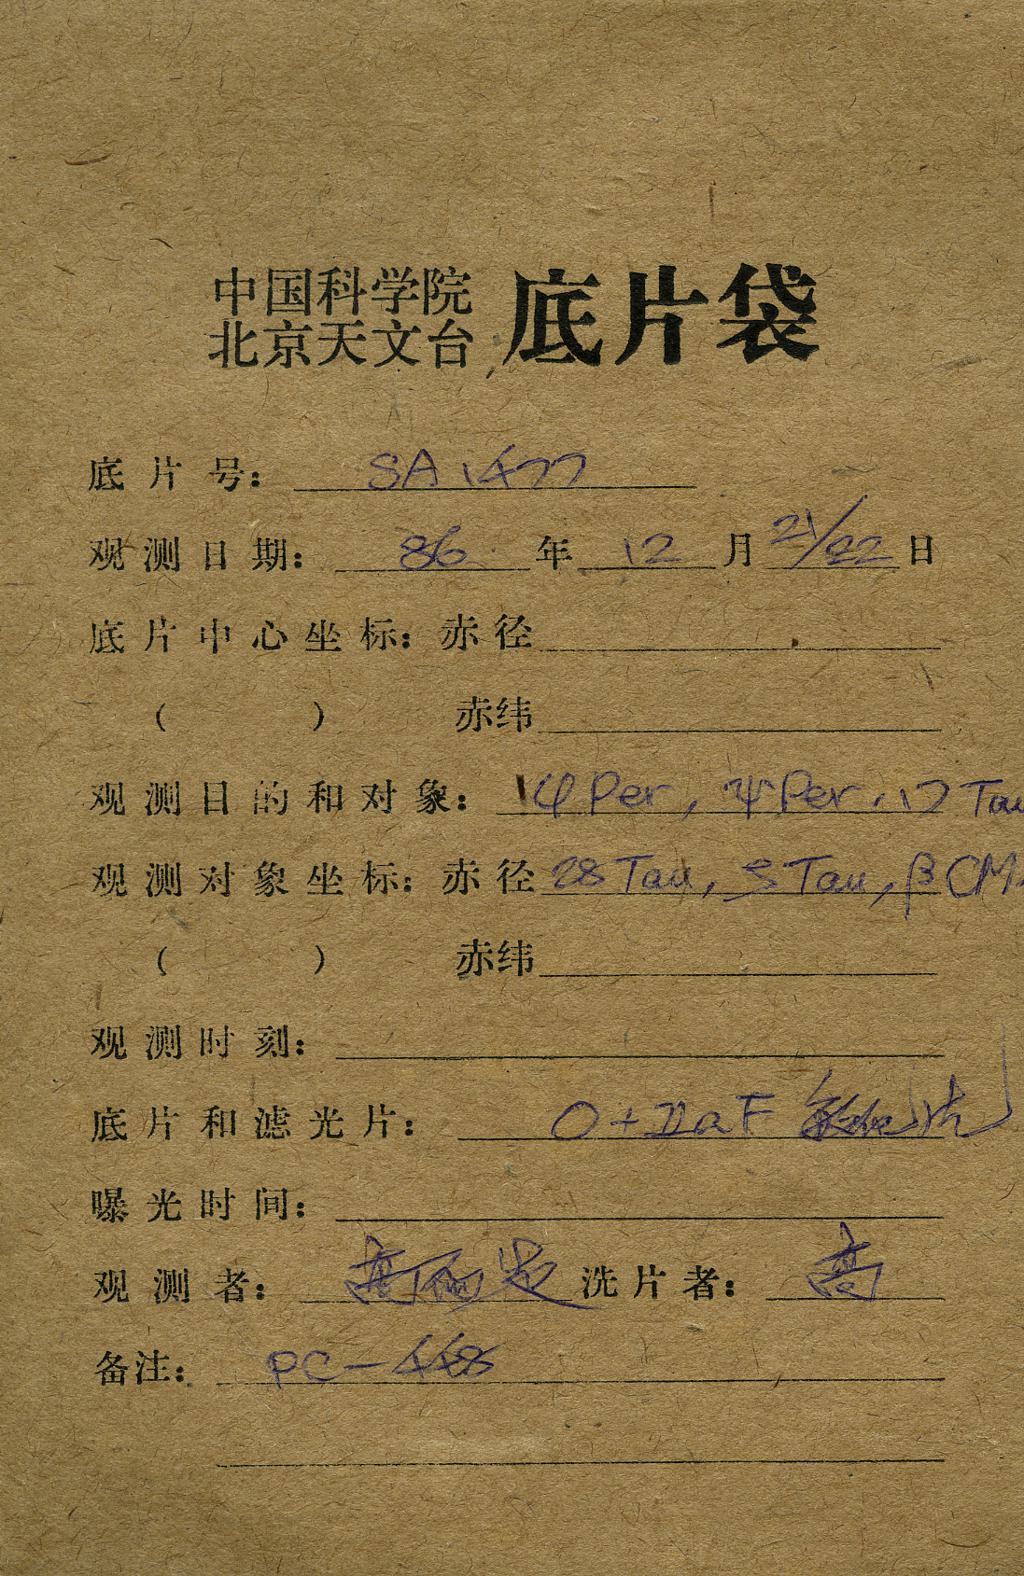 中国科学院
北京天文台 底片袋
底片号: SA1477
观测日期: 86 年 12 月 21/22 日
底片中心坐标: 赤径
( ) 赤纬
观测目的和对象: φ Per, ψ Per, 17 Tau
观测对象坐标: 赤径 28 Tau, ζ Tau, β CM
( ) 赤纬
观测时刻:
底片和滤光片: O+IIaF
曝光时间:
观测者: 洗片者: 高
备注: PC-448